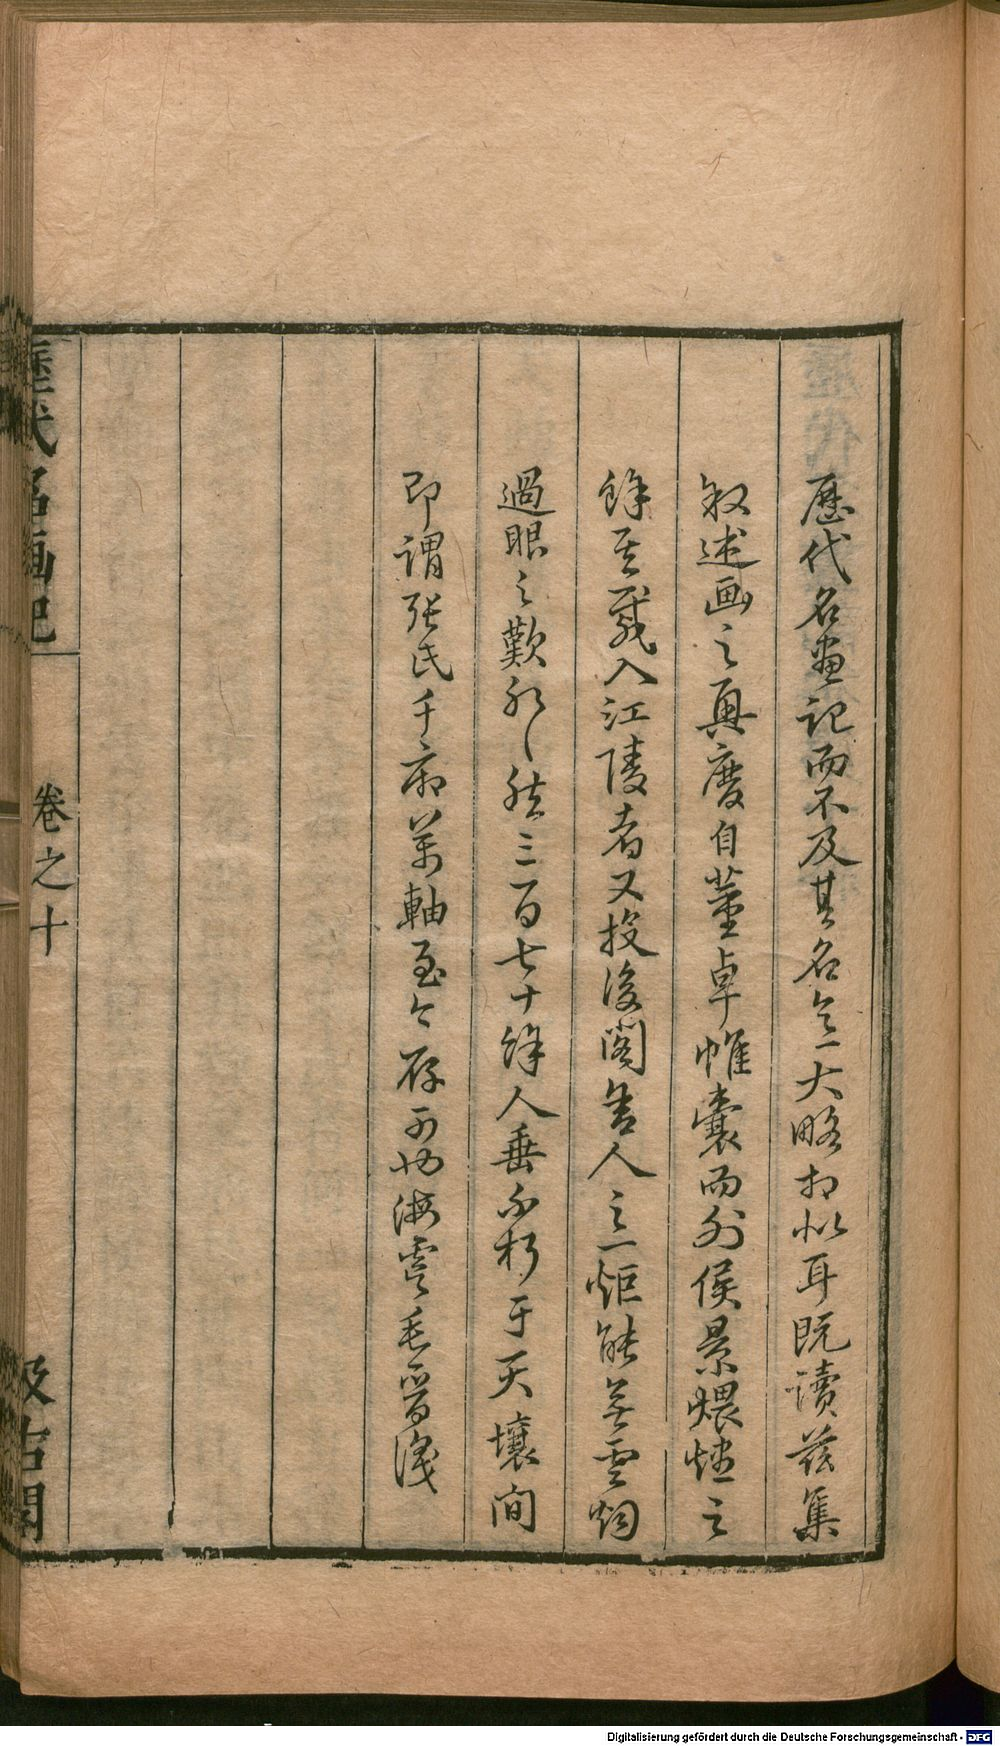 歷代名畫記而不及其名定一大略相似耳既讀茲集
叙述画之興廢自董卓帷囊而外侯景煨燼之
餘其載入江陵者又投後閣舍人之一炬能無雲烟
過眼之歎耶然三百七十餘人垂不朽于天壤間
即謂張氏千廂萬軸至今存可也湖南毛晉識
歷代名画記
卷之十
汲古閣
Digitalisierung gefördert durch die Deutsche Forschungsgemeinschaft - DFG